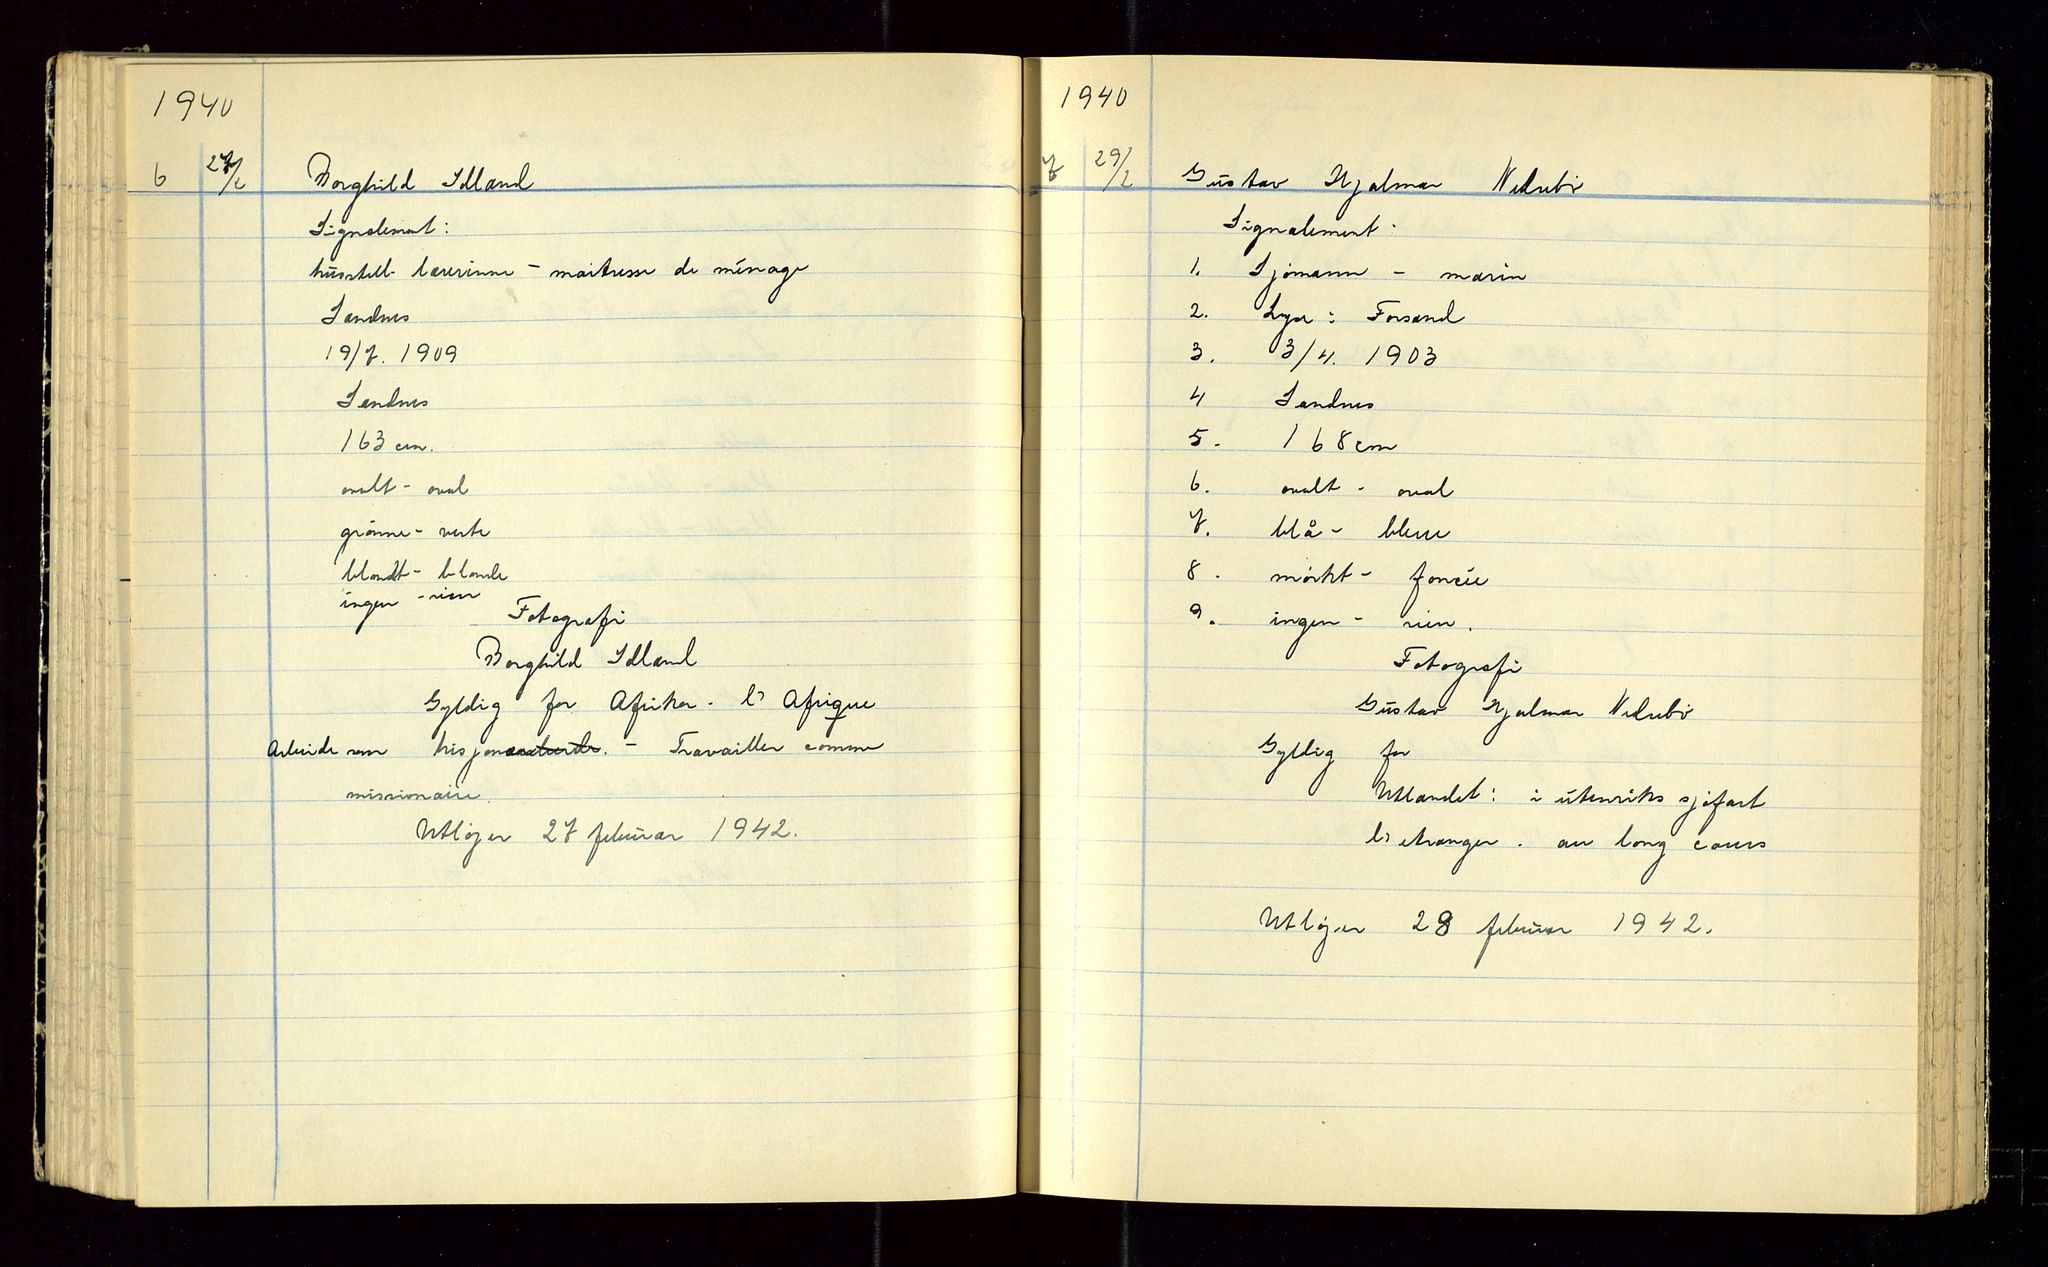 1940
6 27/2 Borghild Idland
Signalement:
husstell-lærerinne - maitresse de ménage
Sandnes
19/7. 1909
Sandnes
163 cm.
ovalt - oval
grønne - verte
blondt - blonde
ingen - rien
Fotografi
Borghild Idland
Gyldig for Afrika - l'Afrique
Arbeide som misjonær - Travailler comme
missionaire.
Utløper 27 februar 1942.
1940
7 29/2 Gustav Hjalmar Nedrebø
Signalement:
1. Sjømann - marin
2. Lyse i Forsand
3. 3/4. 1903
4 Sandnes
5. 168 cm
6. ovalt - oval
7. blå - bleue
8. mørkt - foncée
9. ingen - rien.
Fotografi
Gustav Hjalmar Nedrebø
Gyldig for
Utlandet: i utenriks sjøfart
l'etranger. au long cours
Utløper 28 februar 1942.